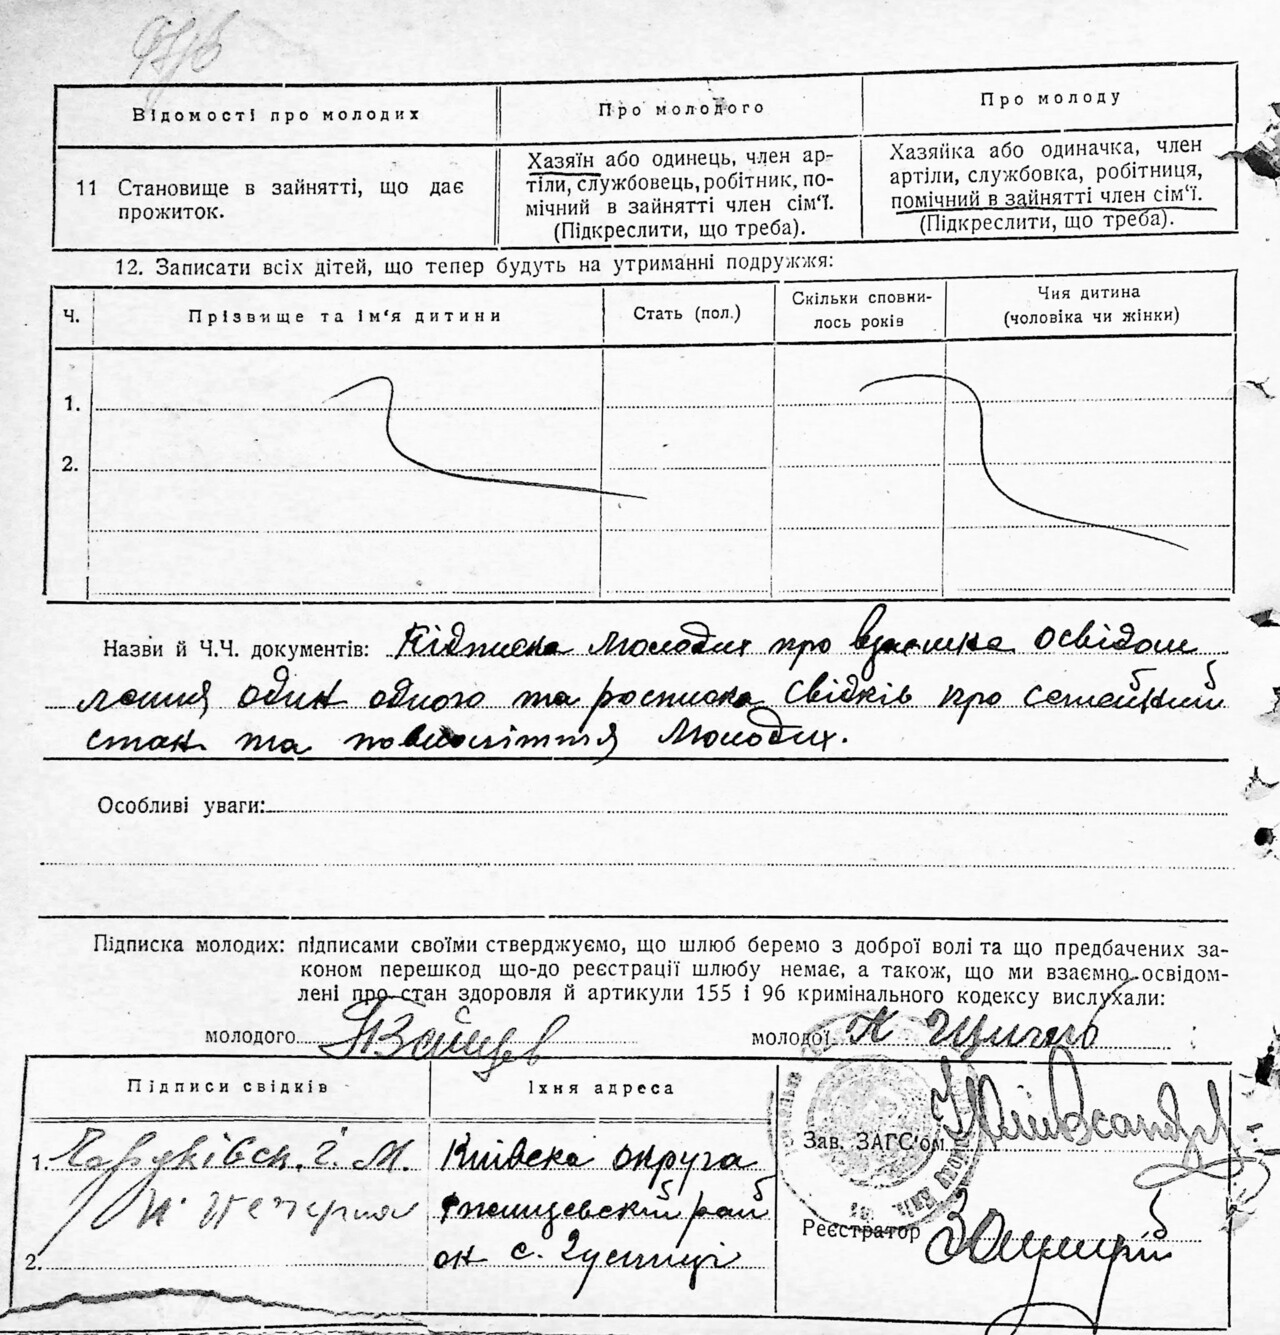 Відомості про молодих
Про молодого
Про молоду
11 Становище в зайнятті, що дає
прожиток.
Хазяїн або одинець, член ар-
тіли, службовець, робітник, по-
мічний в зайнятті член сім'ї.
(Підкреслити, що треба).
Хазяйка або одиначка, член
артіли, службовка, робітниця,
помічний в зайнятті член сім'ї.
(Підкреслити, що треба).
12. Записати всіх дітей, що тепер будуть на утриманні подружжя:
Ч.
Прізвище та ім'я дитини
Стать (пол.)
Скільки сповни-
лось років
Чия дитина
(чоловіка чи жінки)
1.
2.
Назви й Ч.Ч. документів: Підписка молодих про взаємне освідом
лення один одного та росписка свідків про семейний
стан та повноліття молодих.
Особливі уваги:
Підписка молодих: підписами своїми стверджуємо, що шлюб беремо з доброї волі та що предбачених за-
коном перешкод що-до реєстрації шлюбу немає, а також, що ми взаємно освідом-
лені про стан здоровля й артикули 155 і 96 кримінального кодексу вислухали:
молодого
молодої
Підписи свідків
Їхня адреса
1.
Київска округа
Ржищевский рай
он с.
2.
Зав. ЗАГС'ом
Реєстратор